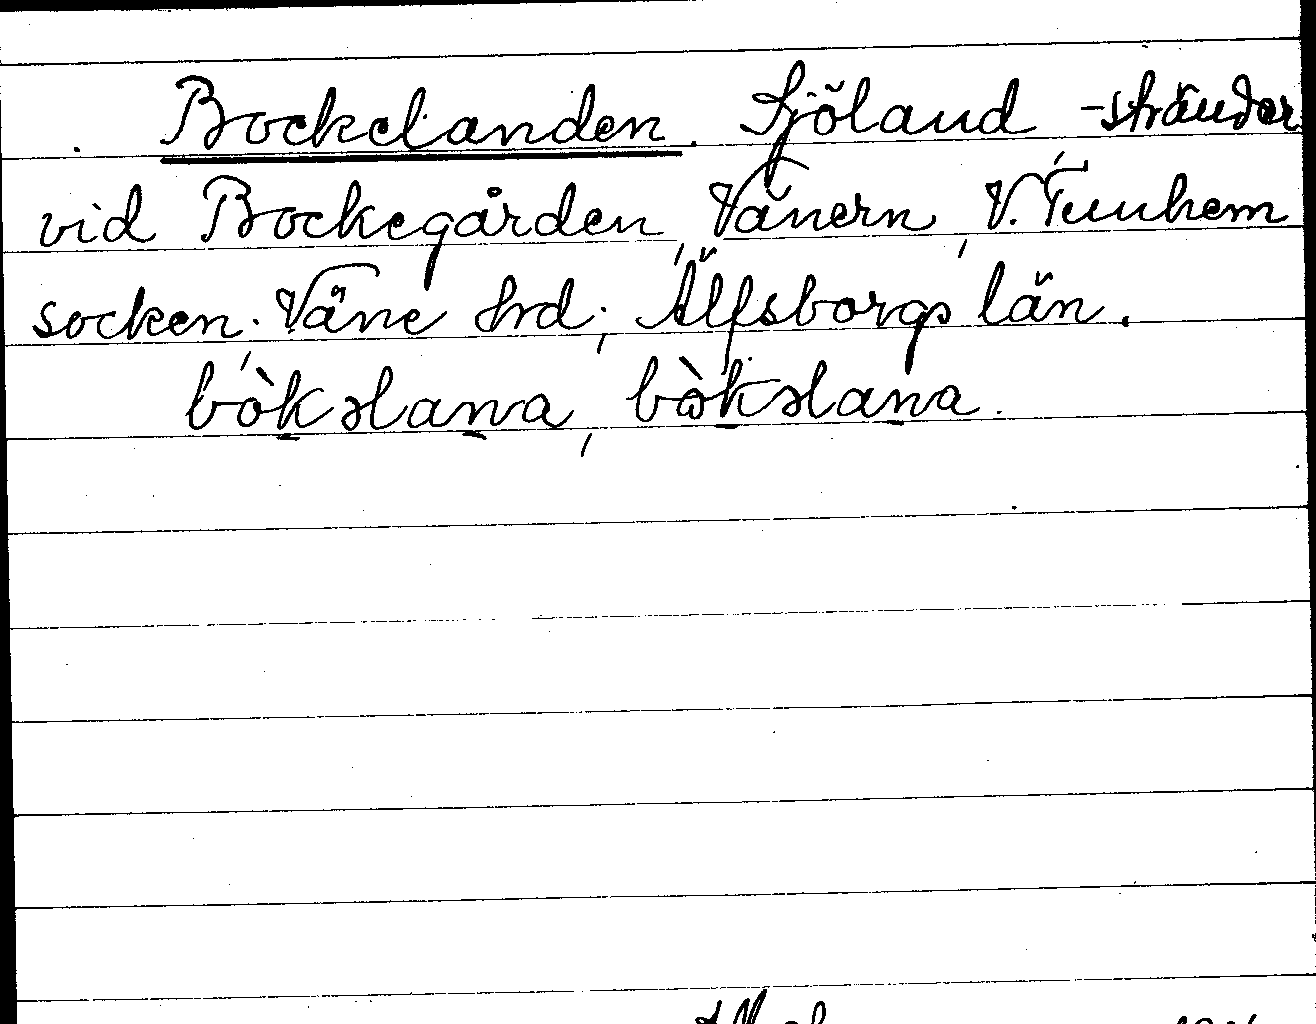 Bockelanden. Sjöland -stränder
vid Bockegården, Vänern, V. Tunhem
socken, Väne hrd; Älfsborgs län.
bòkəlana, bὼkəlana.